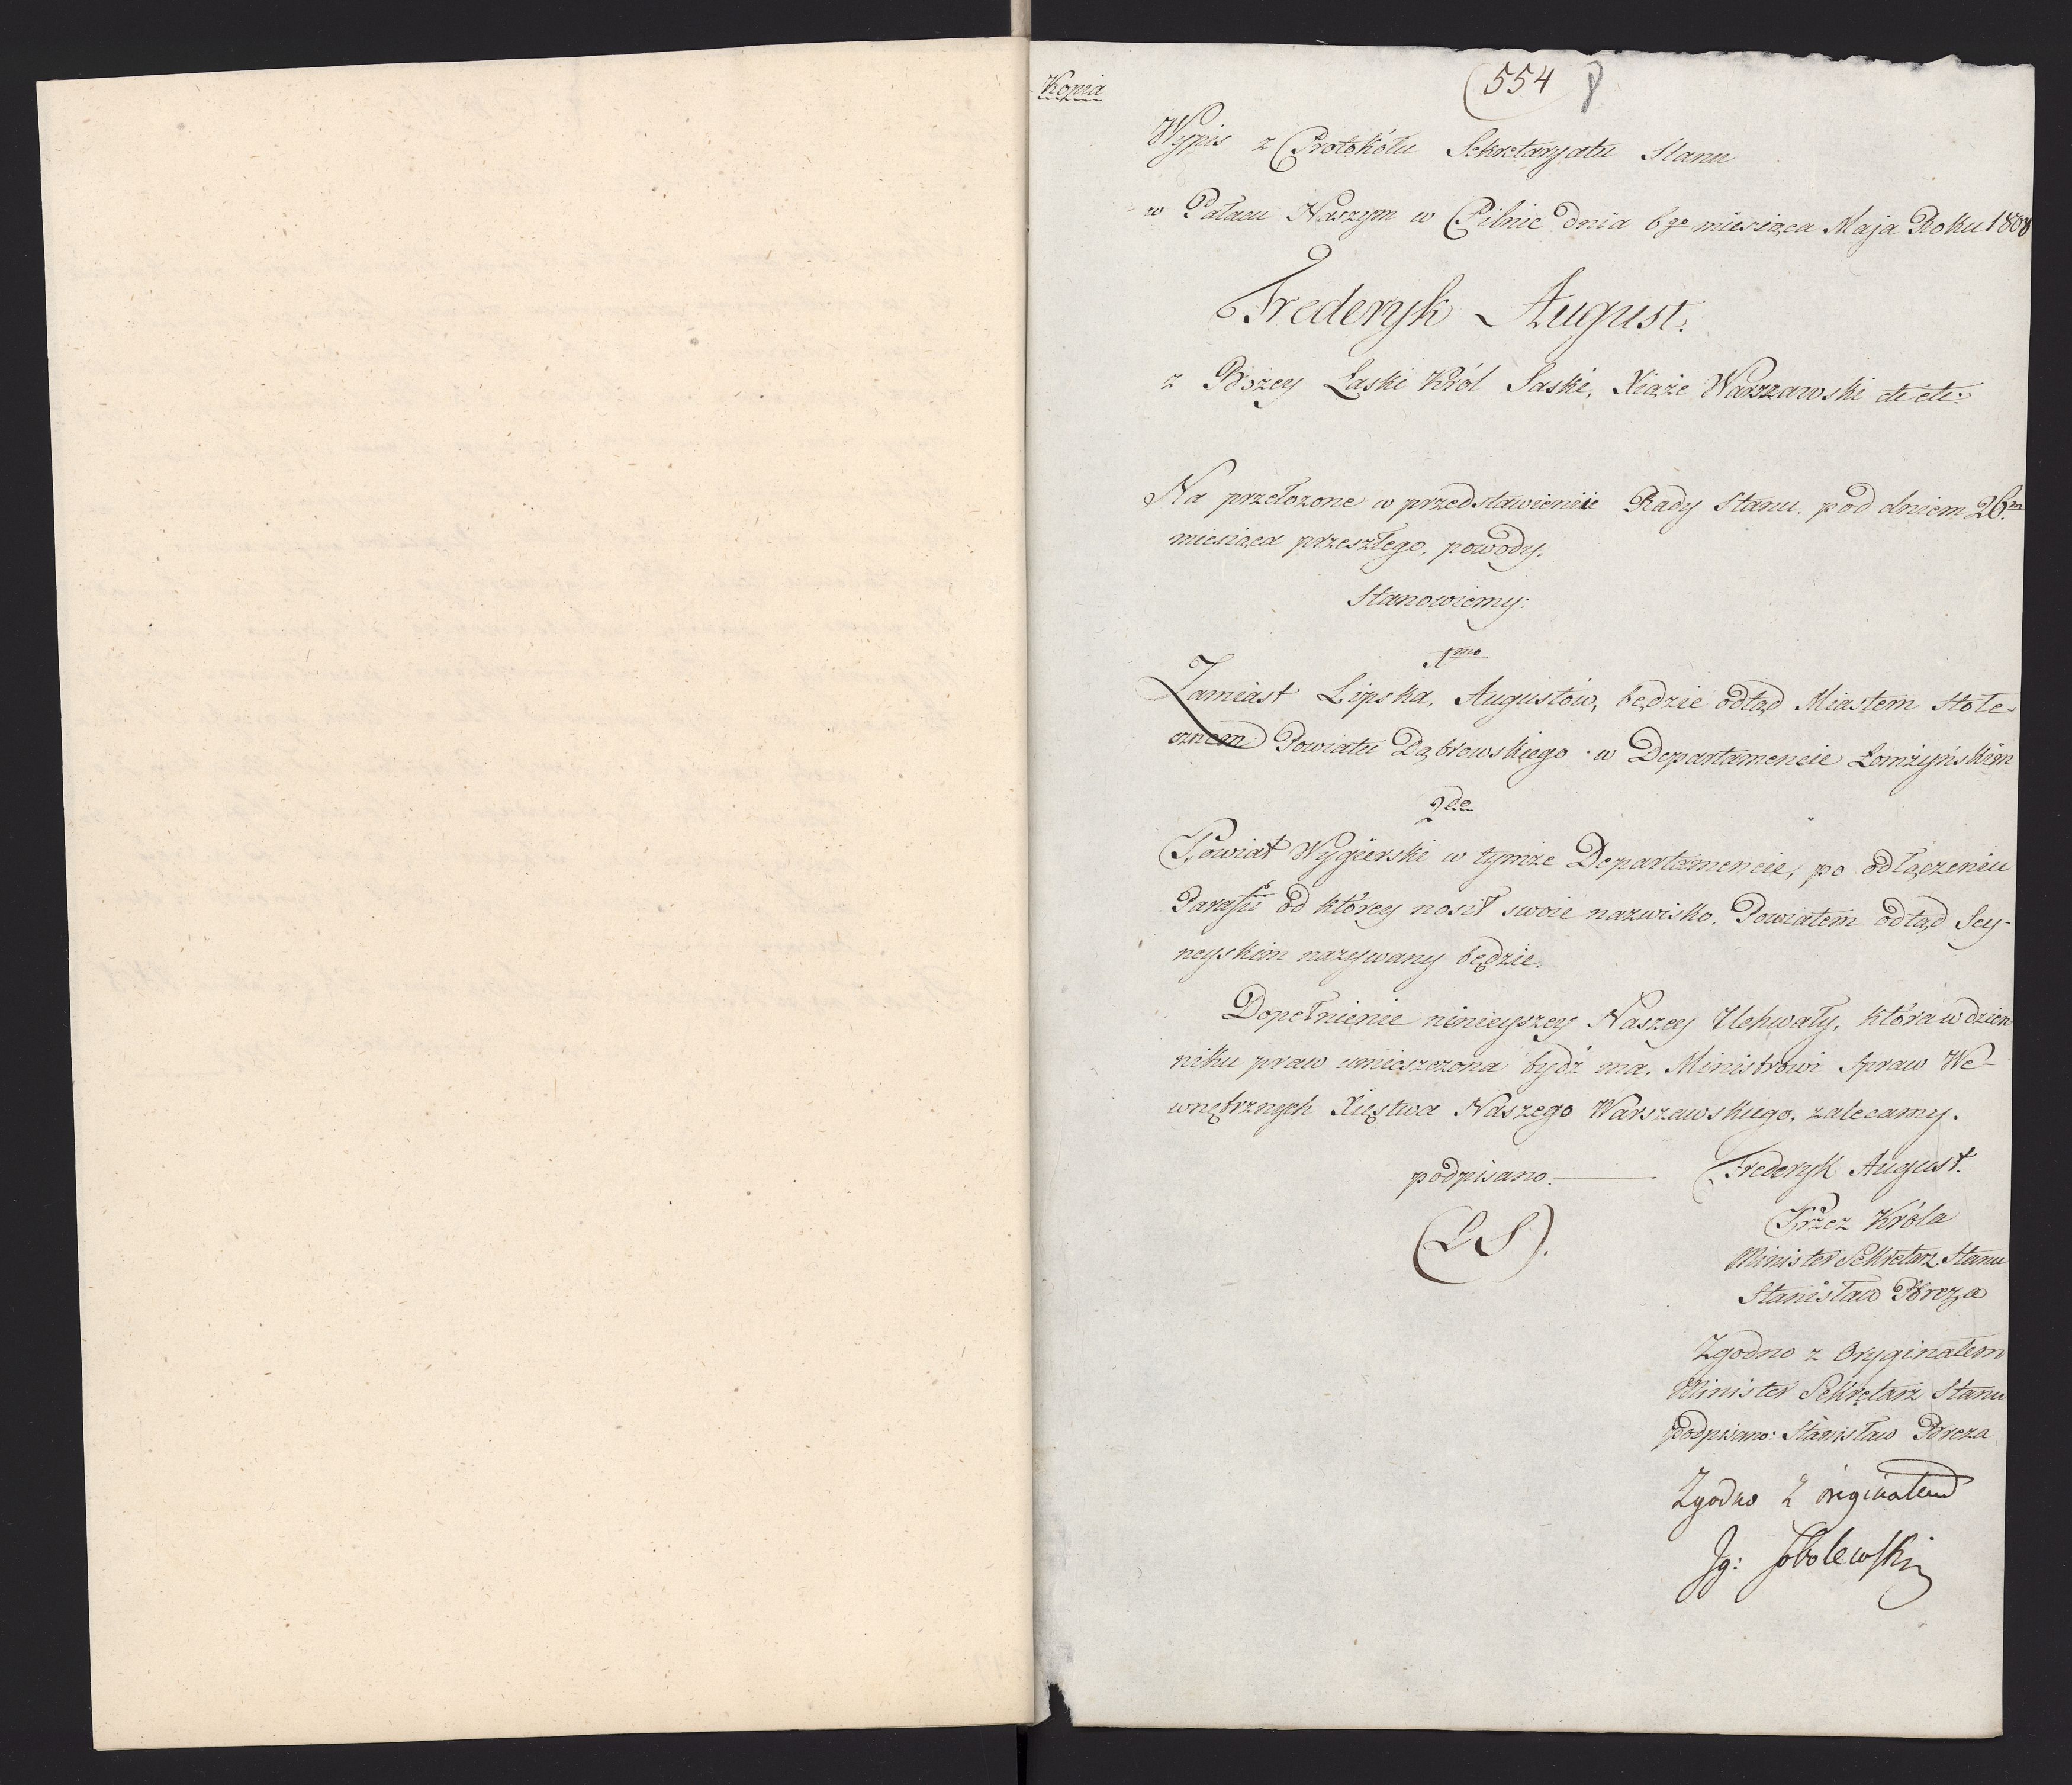 Kopia
554
Wypis z Protokółu Sekretaryatu Stanu
w Pałacu Naszym w Pilnic dnia 6go miesiąca Maja Roku 1808
Frederyk August.
z Bożey Łaski Król Saski, Xiąże Warszawski etc etc:
Na przełożone w przedstawieniu Rady Stanu, pod dniem 26m
miesiąca przeszłego, powody,
Stanowiemy:
1mo
Zamiast Lipska, Augustów, będzie odtąd Miastem Stołe-
cznem Powiatu Dąbrowskiego w Departamencie Łomżyńskim
2do
Powiat Wygierski w tymże Departamencie, po odłączeniu
Parafii od którey nosił swoie nazwisko, Powiatem odtąd Sey-
neyskim nazywany będzie.
Dopełnienie ninieyszey Naszey Uchwały, która w dzien
niku praw umieszczona bydź ma, Ministrowi Spraw We-
wnętrznych Xięstwa Naszego Warszawskiego, zalecamy.
podpisano. Frederyk August.
(L S). Przez Króla
Minister Sekretarz Stanu
Stanisław Breza
Zgodno z Oryginałem
Minister Sekretarz Stanu
Podpisano: Stanisław Breza
Zgodno z originałem
Ig: Sobolewski